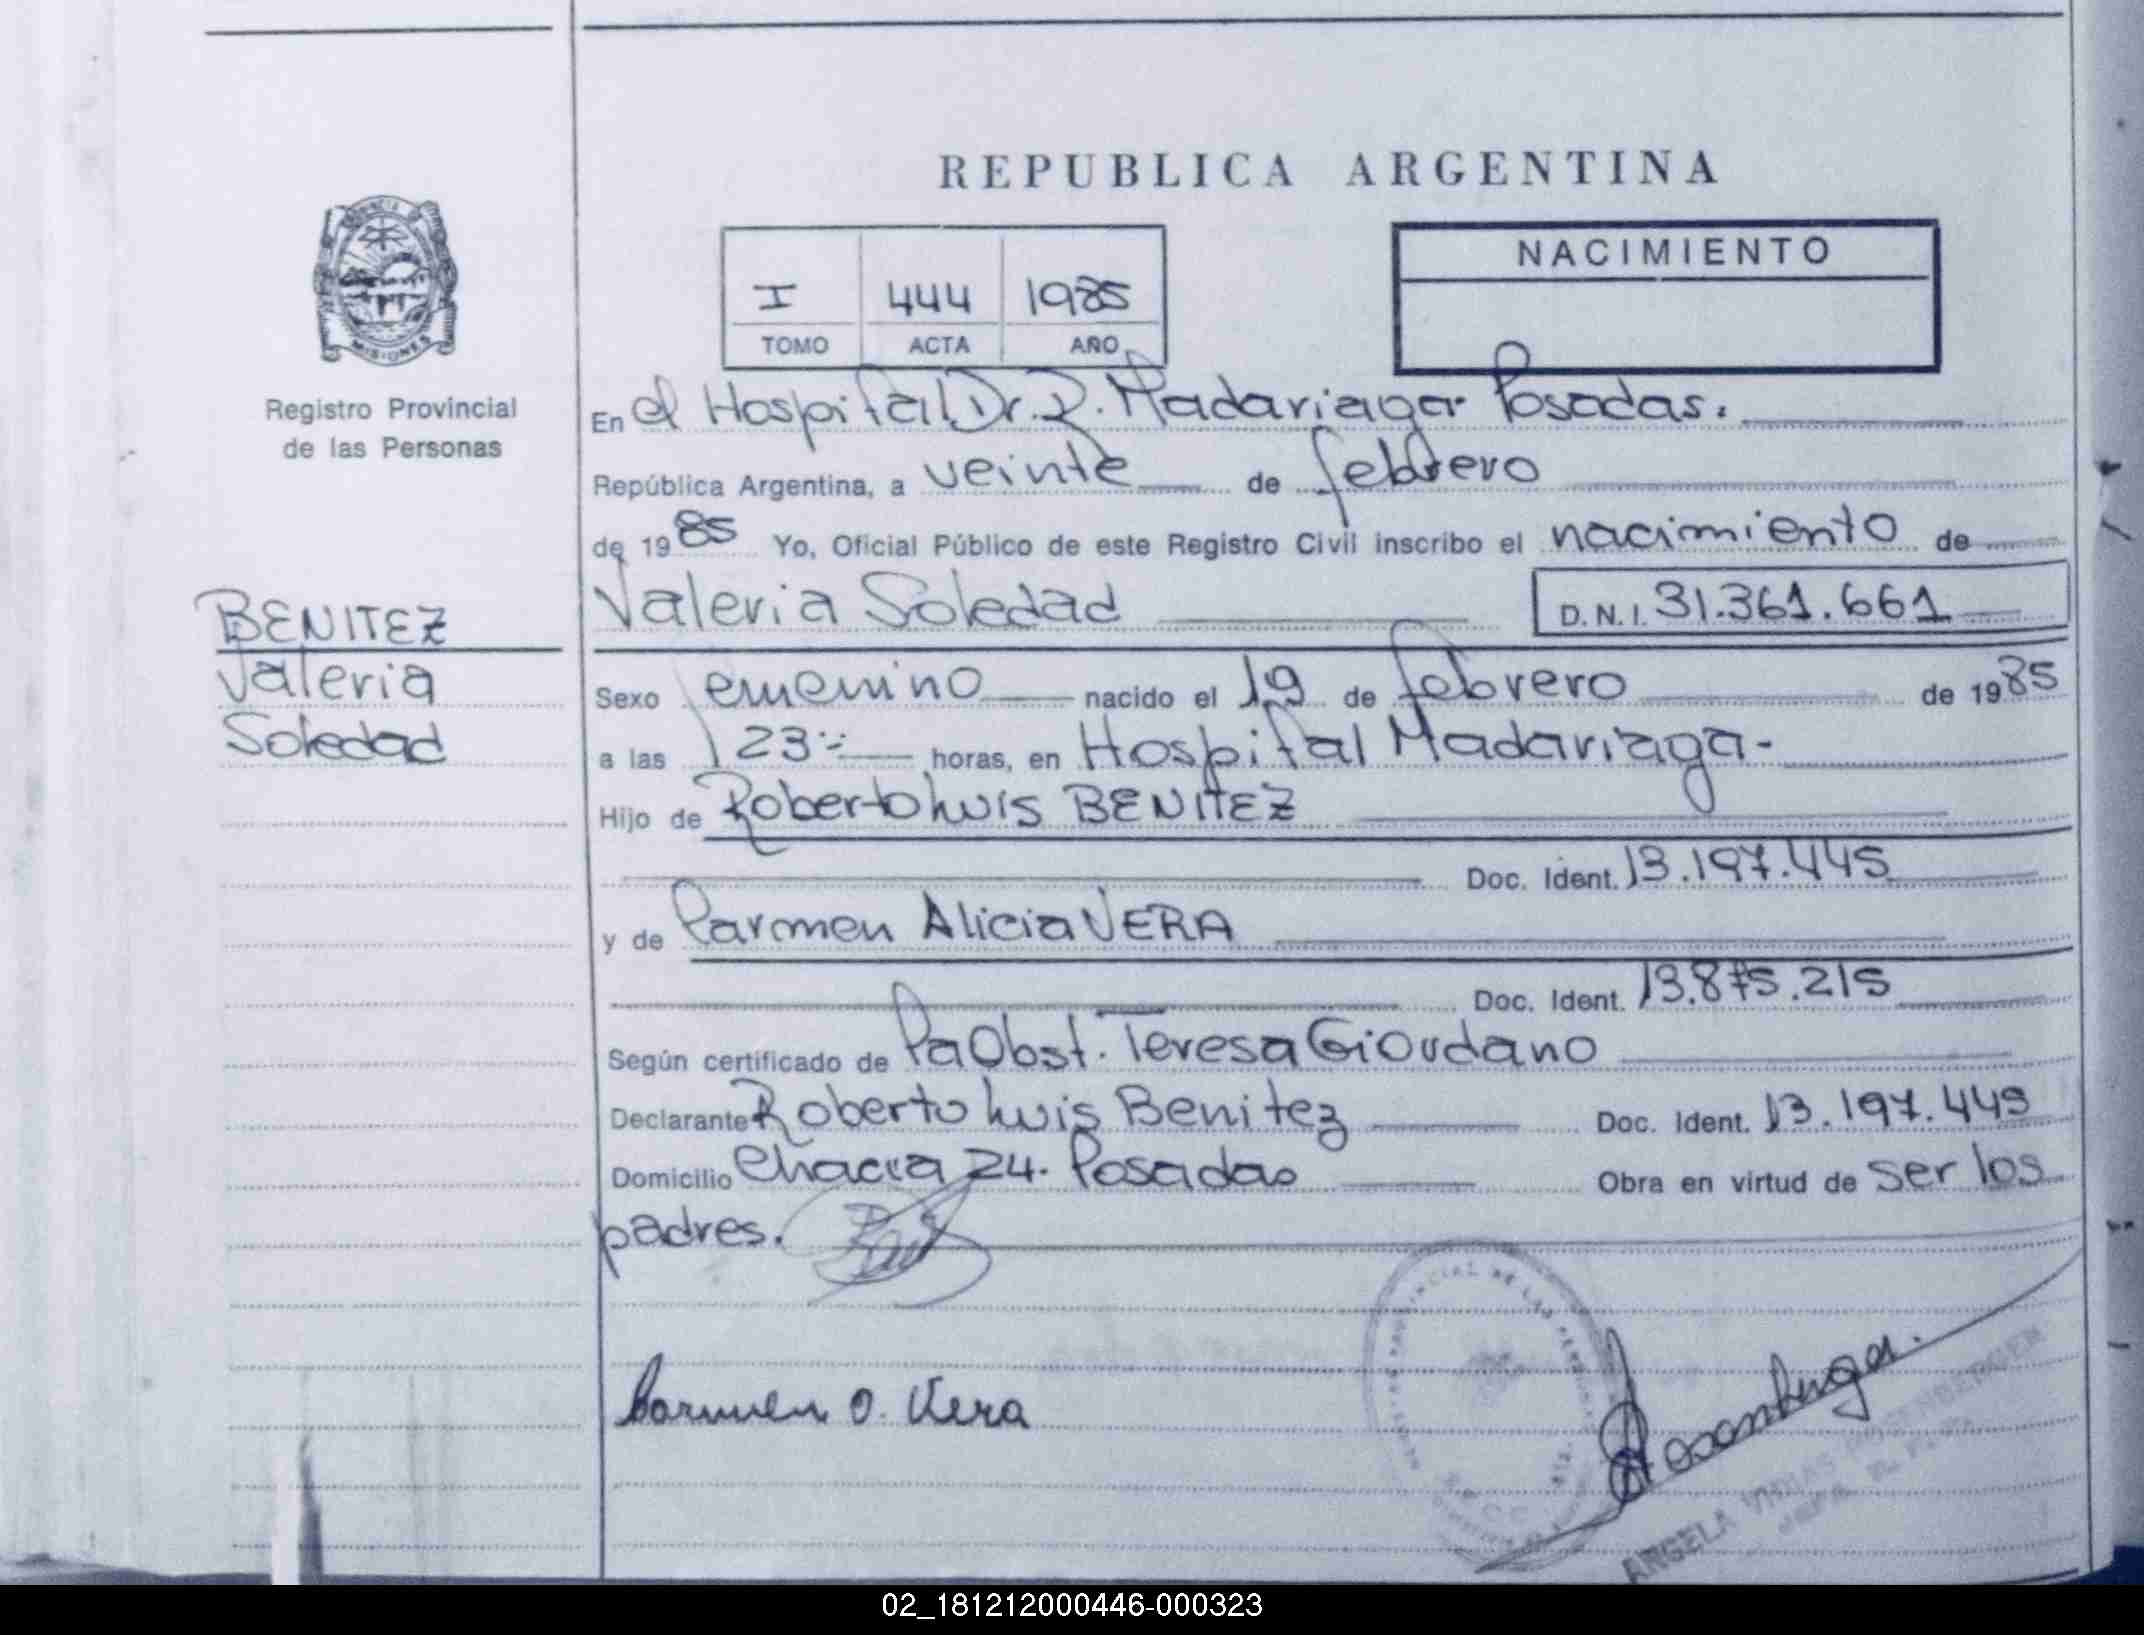 REPUBLICA ARGENTINA
PROVINCIA
MISIONES
Registro Provincial
de las Personas
I 444 1985
TOMO ACTA AÑO
NACIMIENTO
En el Hospital Dr. R. Madariaga Posadas.
República Argentina, a veinte de febrero
de 1985 Yo, Oficial Público de este Registro Civil inscribo el nacimiento de
Valeria Soledad D.N.I. 31.361.661
BENITEZ
Valeria
Soledad
Sexo femenino nacido el 19 de febrero de 1985
a las 23 horas, en Hospital Madariaga-
Hijo de Roberto Luis BENITEZ
Doc. Ident. 13.197.445
y de Carmen Alicia VERA
Doc. Ident. 13.875.215
Según certificado de Pa Obst. Teresa Giordano
Declarante Roberto Luis Benitez Doc. Ident. 13.197.445
Domicilio Chacra 24. Posadas Obra en virtud de ser los
padres.
Carmen O. Vera
ANGELA
02_181212000446-000323